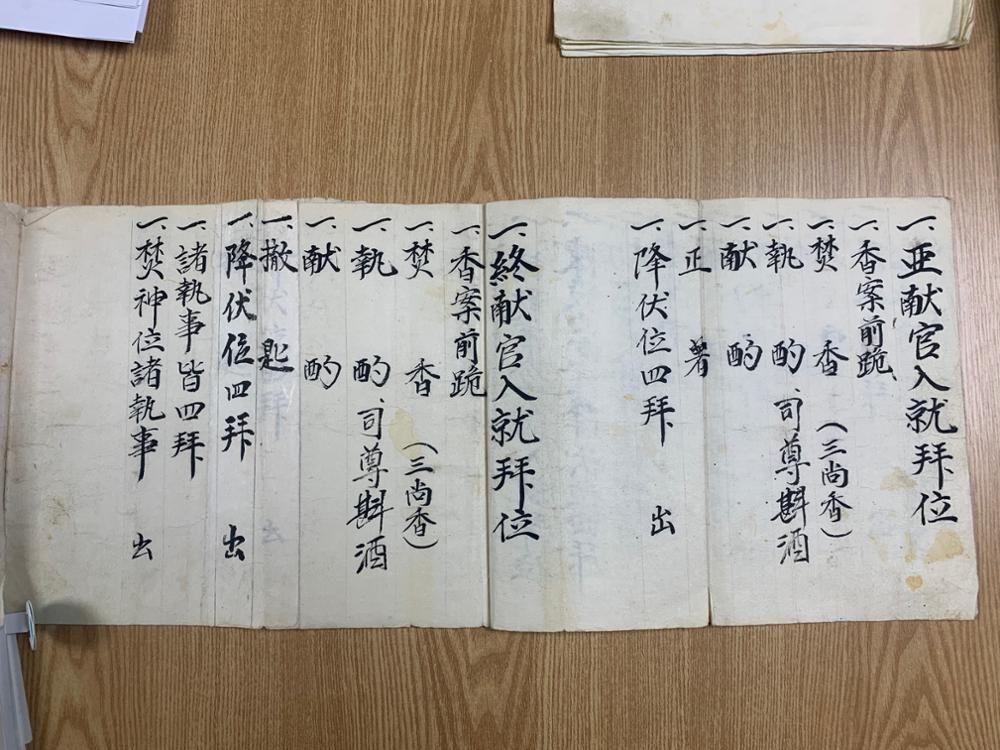 一、亜献官入就拜位
一、香案前跪
一、焚香（三尚香）
一、執酌、司尊斟酒
一、献酌
一、正著
一、降伏位四拜 出
一、終献官入就拜位
一、香案前跪
一、焚香（三尚香）
一、執酌、司尊斟酒
一、献酌
一、撤匙
一、降伏位四拜 出
一、諸執事皆四拜
一、焚神位諸執事 出